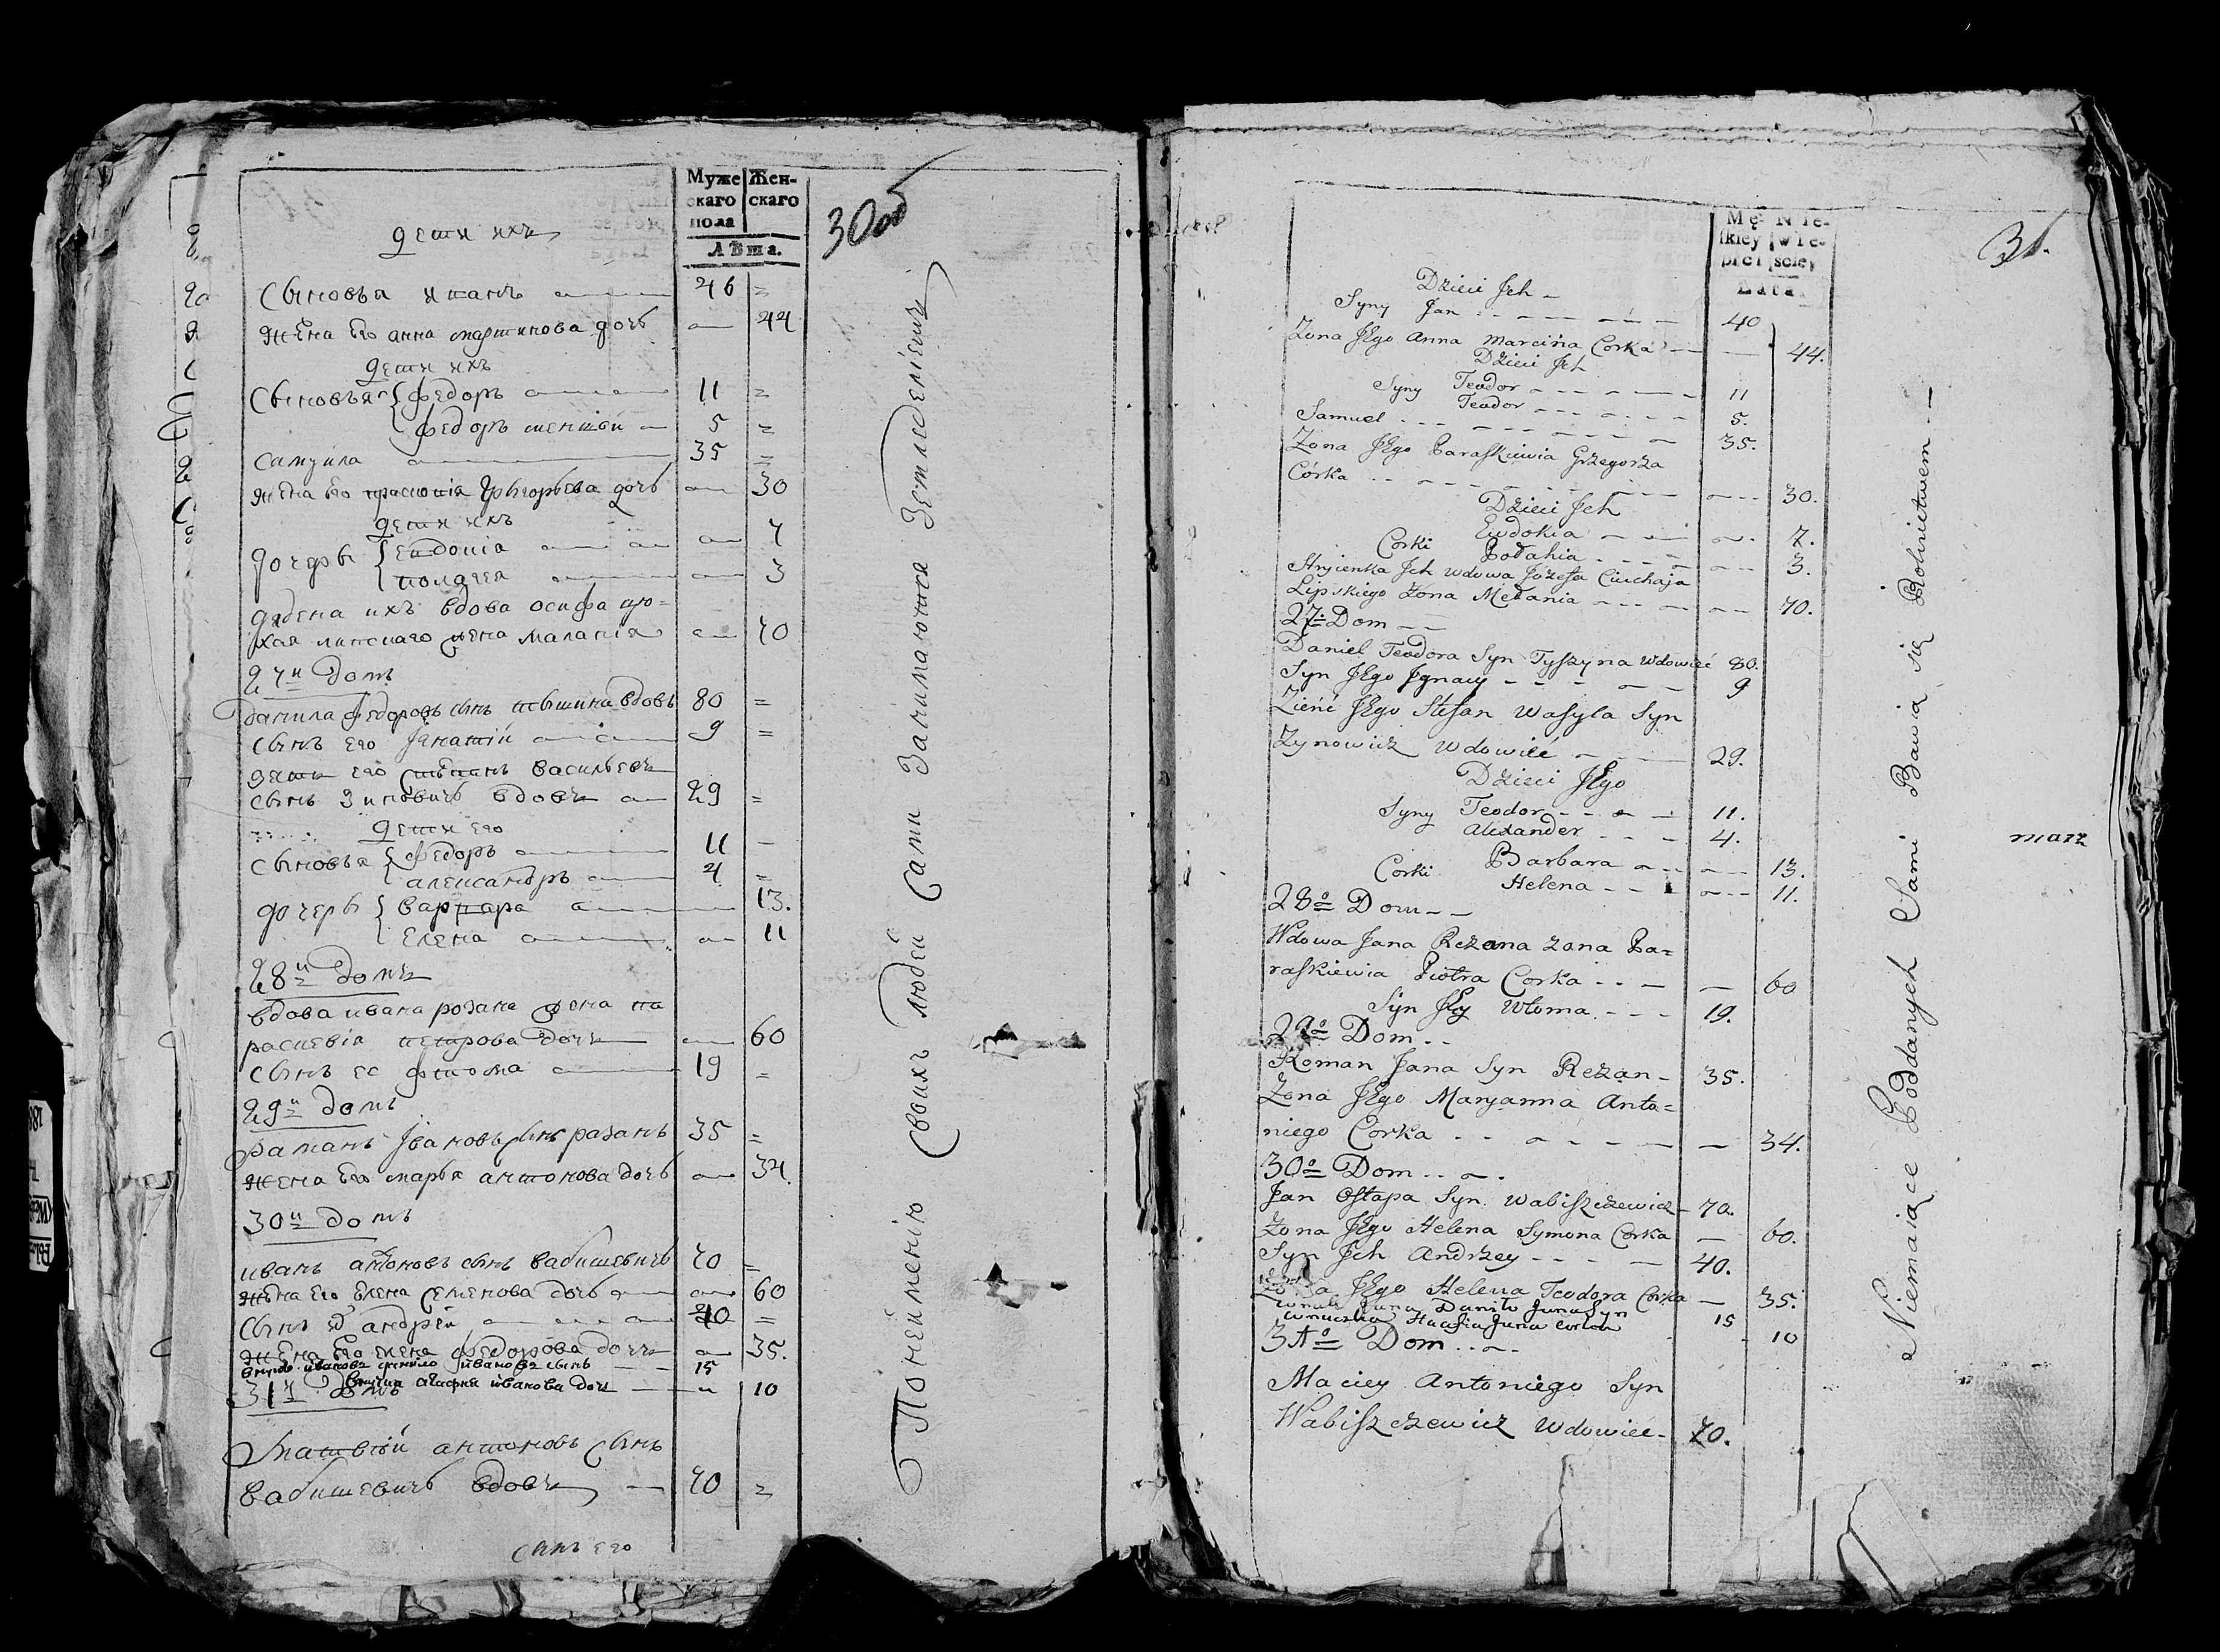 Муже
скаго
пола
Жен-
скаго
Лѣта.
30об
дети ихъ
Сыновья 46 =
жена его анна мартинова дочь — 44
дети ихъ
Сыновья федоръ 11 =
федоръ меншей 5 =
Самуила 35 =
жена его Григорьева дочь — 30
дети ихъ
дочеры Евдокія — 7
3
вдова осифа
жена Маланія — 70
27й домъ
Данила федоровъ сынъ тышина вдовъ 80 =
сынъ его Игнатій 9 =
зять его степанъ васильевъ
сынъ Зиновичъ вдовъ 29 =
дети его
сыновья федоръ 11 —
александръ 4 =
дочеры варвара 13.
елена — 11
28й домъ
вдова ивана розана жена па
раскевія петрова дочь — 60
сынъ ее фтома 19 =
29й домъ
Раманъ Івановъ сынъ разанъ 35 =
жена его марья антонова дочь — 34.
30й домъ
иванъ сынъ вабишевичъ 70 =
жена его Елена Семенова дочь — 60
сынъ андрей 40 =
жена его елена федорова дочь — 35.
ивановъ сынъ 15
внучка иванова доч 10
31й
Матвѣй антоновъ сынъ
вабишевичъ вдовъ — 70 =
сынъ его
Понейменію Своихъ людей Сами Занимаются Земледеліемъ
Mę-
skiey
płci
Nie-
wie-
sciey
Lata.
31.
Dzieci Jch
Syny Jan 40
Zona JEgo Anna Marcina Corka 44.
Dzieci Jch
Syny Teodor 11
Teodor 5.
Samuel 35.
Zona JEgo Paraskiewia Grzegorza
Córka 30.
Dzieci Jch
Corki Eudokia 7.
3.
Stryienka Jch Wdowa Józefa
Lipskiego Zona Melania 70.
27o Dom
Daniel Teodora Syn Tyszyna Wdowiec 80.
Syn JEgo Jgnacy 9
Zienć JEgo Stefan Wasyla Syn
Zynowicz Wdowiec 29.
Dzieci JEgo
Syny Teodor 11.
Alexander 4.
Corki Barbara 13.
Helena 11.
28o Dom
Wdowa Jana Rezana Zona Pa=
raskiewia Piotra Corka 60
Syn JEy Wtoma 19.
29o Dom
Roman Jana Syn Rezan 35.
Zona JEgo Maryanna Anto=
niego Corka 34.
30o Dom
Jan Ostapa Syn Wabiszczewicz 70.
Zona JEgo Helena Symona Corka 60.
Syn Jch Andrzey 40.
Zona JEgo Helena Teodora Corka 35.
Daniło Jana Syn 15
Jana 10
31o Dom
Maciey Antoniego Syn
Wabiszczewicz Wdowiec 70.
Niemaiące Poddanych Sami Bawia się Rolnictwem